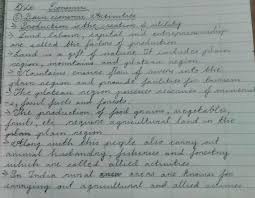 Economics
① Basic economic Activities
→ Production is the creation of utility
→ Land, labour, capital and entrepreneurship
are called the factors of production.
→ Land is a gift of nature. It includes plain
region, mountains and plateau region.
→ Mountains enable flow of rivers into the
plain region and provide facilities for tourism
→ The plateau regions possess reserves of minerals
fruits and forests.
→ The production of food grains, vegetables,
fruits, etc require agricultural land in the
plain region.
→ Along with this people also carry out
animal husbandry, fisheries and forestry
which are called allied activities.
→ In India rural areas are known for
carrying out agricultural and allied activities